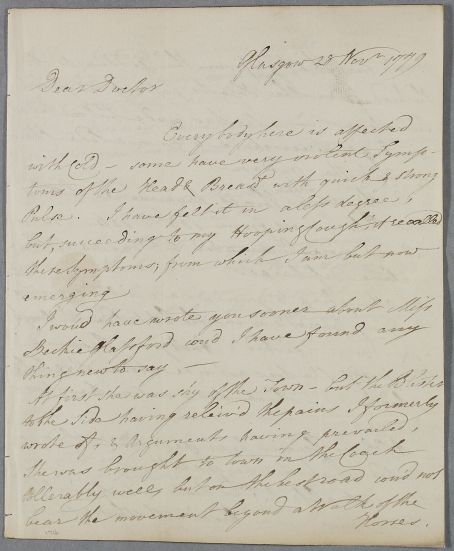 Glasgow 28 Novr 1779
Dear Doctor
Every body here is affected
with Cold - some have very violent Symp-
toms of the Head & Breast with quick & strong
Pulse. I have felt it in a less degree,
but, succeeding to my Hooping Cough, it recalled
these Symptoms; from which I am but now
emerging
I woud have wrote you sooner about Miss
Beckie Glassford coud I have found any
thing new to say —
At first she was shy of the Town - but the Blister
to the Side having reliev'd the pains I formerly
wrote of, & Arguments having prevailed,
She was brought to town in the Coach
tollerably well; but on the best road coud not
bear the movement beyond a Walk of the
Horses.